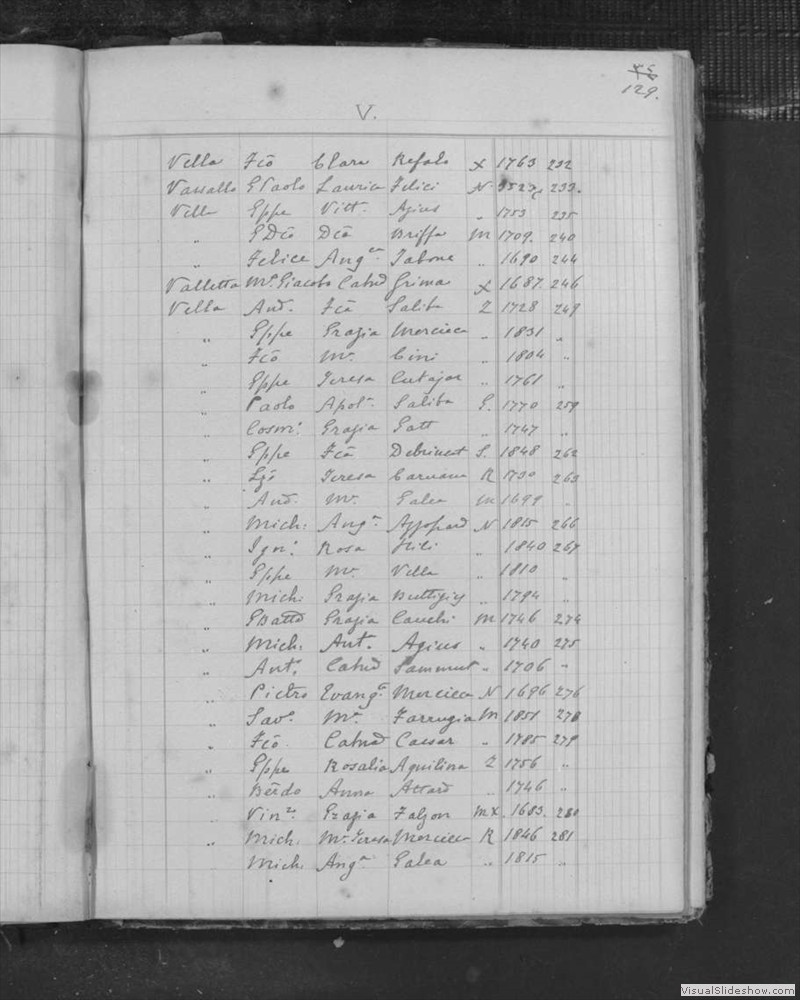 129.
V.
Vella Fcō Clara Refalo X 1763 232
Vassallo G Paolo Laurica Felici N 1527 233.
Vella Gppe Vitt. Agius „ 1753 235
„ G Dcō Dca Briffa M 1709. 240
„ Felice Angca Tabone „ 1690 244
Valletta Mo Giacobo Catnd Grima X 1687. 246
Vella And. Fca Saliba Z 1728 249
„ Gppe Grazia Mercieca „ 1831 „
„ Fcō Ma. Cini „ 1804 „
„ Gppe Teresa Cutajar „ 1761 „
„ Paolo Apola. Saliba G. 1770 259
„ Cosmo. Grazia Gatt „ 1747 „
„ Gppe Fca Debrincat S. 1848 262
„ Lzō Teresa Caruana R 1730 263
„ And. Ma. Galea M 1699 „
„ Mich: Anga. Azzopard N 1815 266
„ Igno: Rosa Hili „ 1840 267
„ Gppe Ma. Vella „ 1810 „
„ Mich: Grazia Buttigieg „ 1794 „
„ GBatta Grazia Cauchi M 1746 274
„ Mich. Ant. Agius „ 1740 275
„ Anto. Catnd Sammut „ 1706 „
„ Pietro Evanga. Mercieca N 1696 276
„ Savo. Ma. Farrugia M 1851 278
„ Fcō. Catnd Caesar „ 1785 279
„ Gppe Rosalia Aquilina Z 1756 „
Berdo Anna Attard „ 1746 „
„ Vinzo. Grazia Falzon MX. 1683. 280
„ Mich. Ma. Teresa Mercieca R 1846 281
Mich. Anga Galea „ 1815 „
VisualSlideshow.com